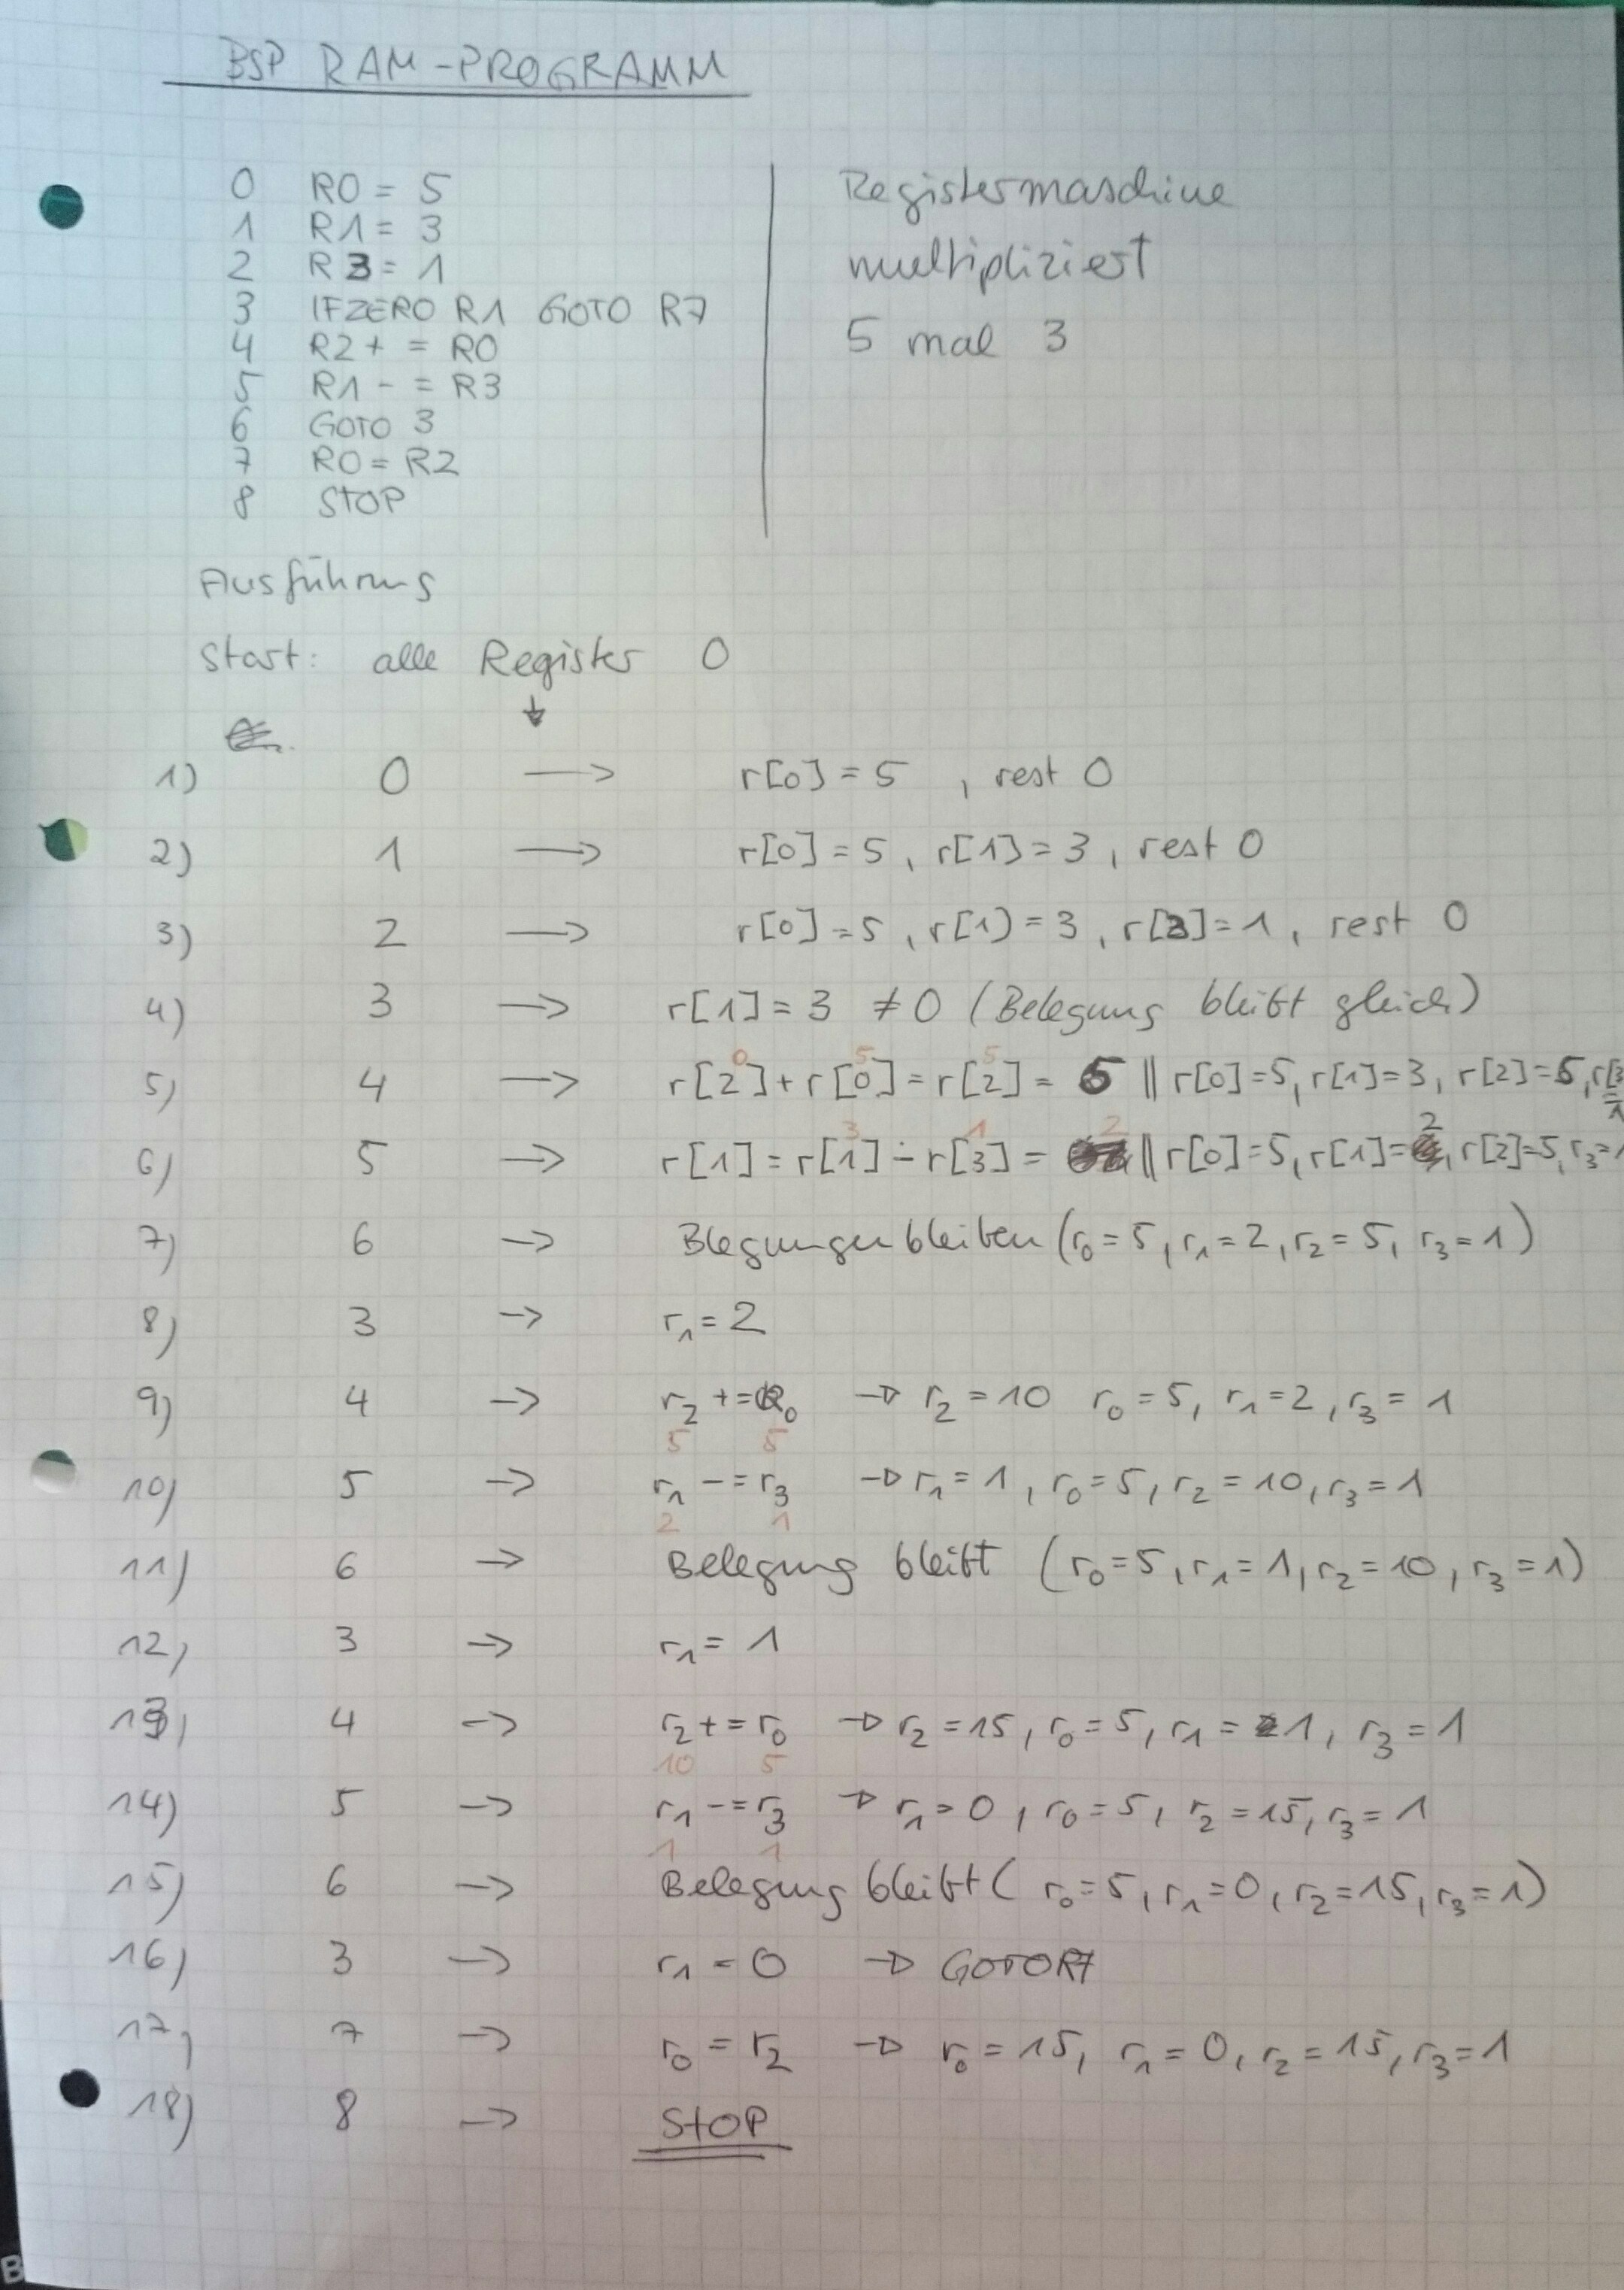 BSP RAM-PROGRAMM
0 R0 = 5
1 R1 = 3
2 R3 = 1
3 IFZERO R1 GOTO R7
4 R2 + = R0
5 R1 - = R3
6 GOTO 3
7 R0 = R2
8 STOP
Registermaschine
multipliziert
5 mal 3
Ausführung
Start: alle Register 0
↓
1) 0 → r[0] = 5 , rest 0
2) 1 → r[0] = 5 , r[1] = 3 , rest 0
3) 2 → r[0] = 5 , r[1) = 3 , r[3] = 1 , rest 0
4) 3 → r[1] = 3 ≠ 0 (Belegung bleibt gleich)
0 5 5
5) 4 → r[2] + r[0] = r[2] = 5 || r[0] = 5, r[1] = 3, r[2] = 5, r[3 = 1
3 1 2 2
6) 5 → r[1] = r[1] - r[3] = || r[0] = 5, r[1] = , r[2] = 5, r3 = 1
7) 6 → Blegungen bleiben (r0 = 5, r1 = 2, r2 = 5, r3 = 1)
8) 3 → r1 = 2
9) 4 → r2 += R0 → r2 = 10 r0 = 5, r1 = 2, r3 = 1
5 5
10) 5 → r1 -= r3 → r1 = 1, r0 = 5, r2 = 10, r3 = 1
2 1
11) 6 → Belegung bleibt (r0 = 5, r1 = 1, r2 = 10, r3 = 1)
12) 3 → r1 = 1
13) 4 → r2 += r0 → r2 = 15, r0 = 5, r1 = 1, r3 = 1
10 5
14) 5 → r1 -= r3 → r1 = 0, r0 = 5, r2 = 15, r3 = 1
1 1
15) 6 → Belegung bleibt ( r0 = 5, r1 = 0, r2 = 15, r3 = 1)
16) 3 → r1 = 0 → GOTO R7
17) 7 → r0 = r2 → r0 = 15, r1 = 0, r2 = 15, r3 = 1
18) 8 → STOP
B